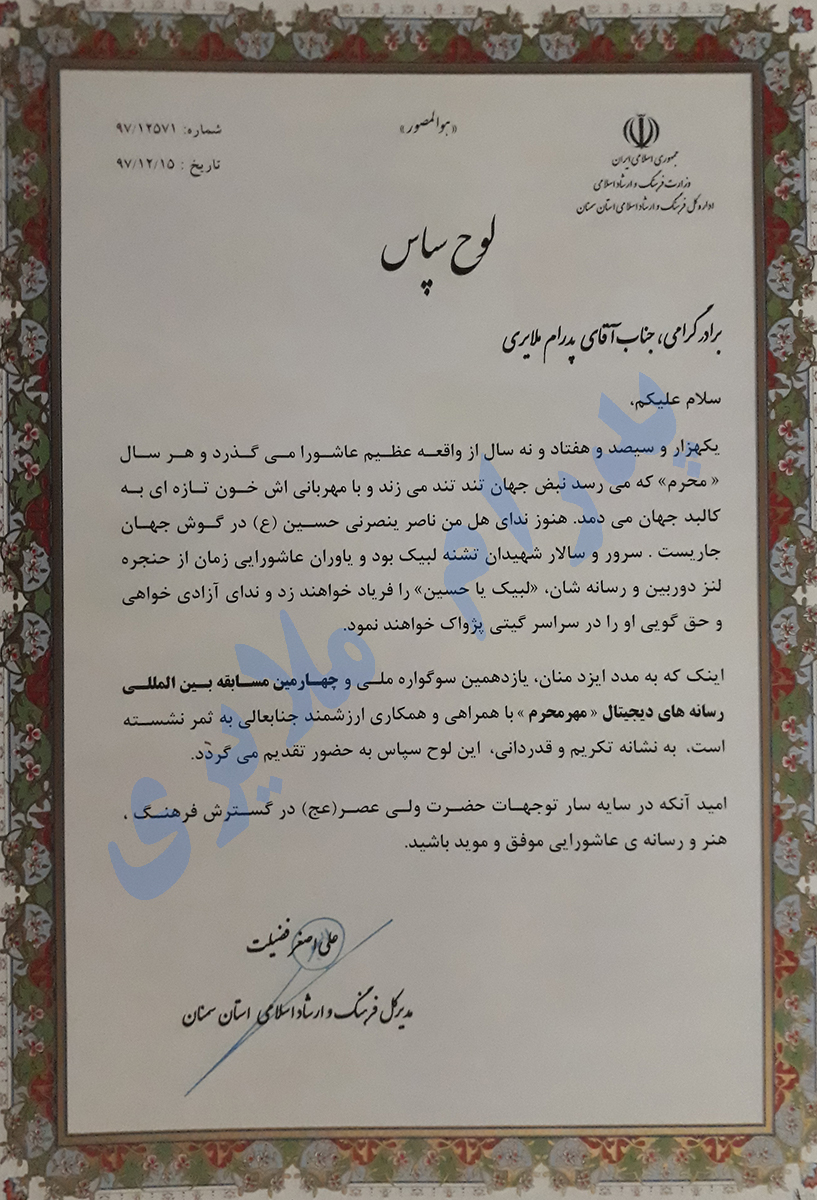 «هوالمصور»
جمهوری اسلامی ایران
وزارت فرهنگ و ارشاد اسلامی
اداره کل فرهنگ و ارشاد اسلامی استان سمنان
شماره: ۹۷/۱۲۵۷۱
تاریخ : ۹۷/۱۲/۱۵
لوح سپاس
برادر گرامی، جناب آقای پدرام ملایری
سلام علیکم،
یکهزار و سیصد و هفتاد و نه سال از واقعه عظیم عاشورا می گذرد و هر سال
« محرم» که می رسد نبض جهان تند تند می زند و با مهربانی اش خون تازه ای به
کالبد جهان می دمد. هنوز ندای هل من ناصر ینصرنی حسین (ع) در گوش جهان
جاریست . سرور و سالار شهیدان تشنه لبیک بود و یاوران عاشورایی زمان از حنجره
لنز دوربین و رسانه شان، «لبیک یا حسین» را فریاد خواهند زد و ندای آزادی خواهی
و حق گویی او را در سراسر گیتی پژواک خواهند نمود.
اینک که به مدد ایزد منان، یازدهمین سوگواره ملی و چهارمین مسابقه بین المللی
رسانه های دیجیتال « مهرمحرم » با همراهی و همکاری ارزشمند جنابعالی به ثمر نشسته
است، به نشانه تکریم و قدردانی، این لوح سپاس به حضور تقدیم می گردد.
امید آنکه در سایه سار توجهات حضرت ولی عصر(عج) در گسترش فرهنگ ،
هنر و رسانه ی عاشورایی موفق و موید باشید.
علی اصغر فضیلت
مدیر کل فرهنگ و ارشاد اسلامی استان سمنان
پدرام ملایری